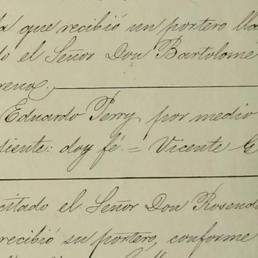 la que recibió un portero lla
do el Señor Don Bartolome
rena.
Eduardo Perry por medio
diente: doy fé = Vicente G
citado el Señor Don Rosend
recibió su portero, conforme